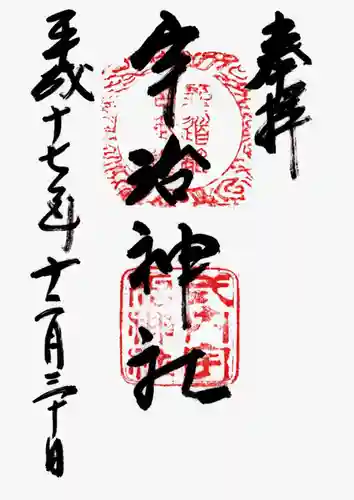 奉拝
宇治神社
平成十七年十二月三十日